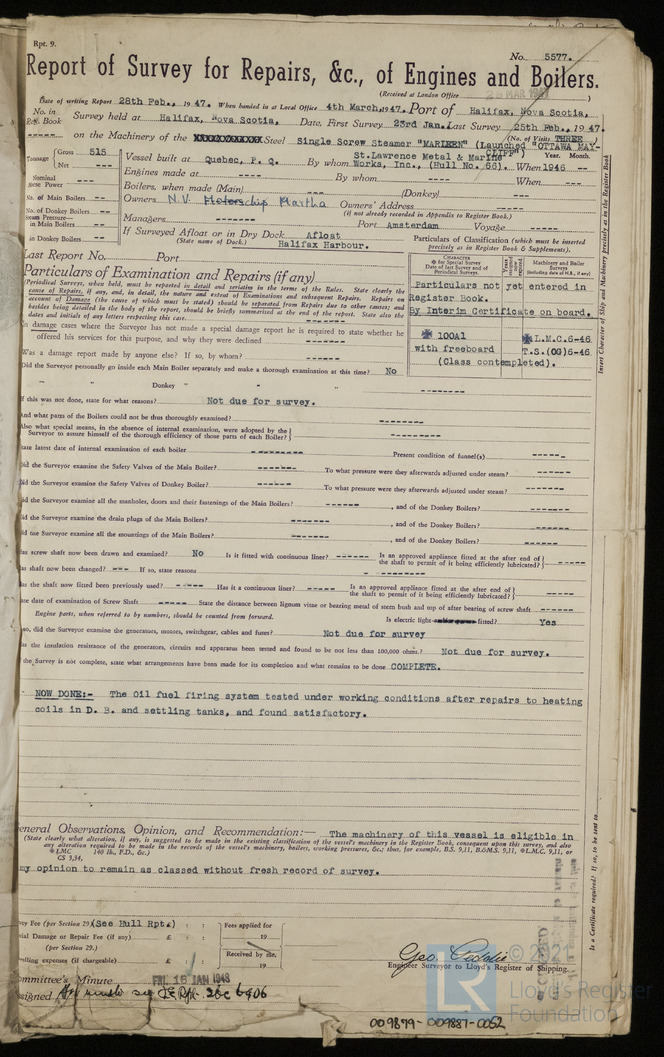 Rpt. 9.
No. 5577.
Report of Survey for Repairs, &c., of Engines and Boilers.
(Received at London Office 25 MAR 1947)
Date of writing Report 28th Feb., 1947. When handed in at Local Office 4th March, 1947. Port of Halifax, Nova Scotia,
No. in Reg. Book Survey held at Halifax, Nova Scotia, Date, First Survey 23rd Jan. Last Survey 25th Feb., 1947.
(No. of Visits THREE)
----- on the Machinery of the XXXXXXXXXXX Steel Single Screw Steamer "MARIREN" (Launched "OTTAWA MAYCLIFF")
Tonnage { Gross 515
Net ---
Vessel built at Quebec, P. Q. By whom St. Lawrence Metal & Marine Works, Inc., (Hull No. 66). When 1946 --
Year. Month.
Nominal Horse Power ---
Engines made at ----- By whom ----- When -----
Boilers, when made (Main) ----- (Donkey) -----
No. of Main Boilers --
No. of Donkey Boilers --
Steam Pressure—
in Main Boilers --
in Donkey Boilers --
Owners N.V. Motorschip Martha Owners' Address -----
(if not already recorded in Appendix to Register Book.)
Managers ------- Port Amsterdam Voyage -----
If Surveyed Afloat or in Dry Dock Afloat
(State name of Dock.) Halifax Harbour.
Particulars of Classification (which must be inserted precisely as in Register Book & Supplements).
Last Report No. Port
CHARACTER
* for Special Survey
Date of last Survey and of Periodical Surveys.
Machinery and Boiler Surveys
(including date of N.B., if any).
Particulars not yet entered in
Register Book.
By Interim Certificate on board.
* 100A1
with freeboard
* L.M.C. 6-46
T.S.(OG) 6-46
(Class contemplated).
Particulars of Examination and Repairs (if any)
(Periodical Surveys, when held, must be reported in detail and seriatim in the terms of the Rules. State clearly the
cause of Repairs, if any, and, in detail, the nature and extent of Examinations and subsequent Repairs. Repairs on
account of Damage (the cause of which must be stated) should be separated from Repairs due to other causes; and
besides being detailed in the body of the report, should be briefly summarised at the end of the report. State also the
dates and initials of any letters respecting this case.) -------
In damage cases where the Surveyor has not made a special damage report he is required to state whether he
offered his services for this purpose, and why they were declined ------
Was a damage report made by anyone else? If so, by whom? ------
Did the Surveyor personally go inside each Main Boiler separately and make a thorough examination at this time? No
" " Donkey " " " --------
If this was not done, state for what reasons? Not due for survey.
And what parts of the Boilers could not be thus thoroughly examined? --------
Also what special means, in the absence of internal examination, were adopted by the
Surveyor to assure himself of the thorough efficiency of those parts of each Boiler? } ---------
State latest date of internal examination of each boiler --------- Present condition of funnel(s) -----
Did the Surveyor examine the Safety Valves of the Main Boiler? ------- To what pressure were they afterwards adjusted under steam? ------
Did the Surveyor examine the Safety Valves of Donkey Boiler? ------- To what pressure were they afterwards adjusted under steam? ------
Did the Surveyor examine all the manholes, doors and their fastenings of the Main Boilers? -------, and of the Donkey Boilers? ------
Did the Surveyor examine the drain plugs of the Main Boilers? -------, and of the Donkey Boilers? ------
Did the Surveyor examine all the mountings of the Main Boilers? -------, and of the Donkey Boilers? ------
Has screw shaft now been drawn and examined? No Is it fitted with continuous liner? ------ Is an approved appliance fitted at the after end of the shaft to permit of it being efficiently lubricated? } -----
Has shaft now been changed? --- If so, state reasons - --------
Has the shaft now fitted been previously used? ----- Has it a continuous liner? ----- Is an approved appliance fitted at the after end of the shaft to permit of it being efficiently lubricated? } -----
State date of examination of Screw Shaft ----- State the distance between lignum vitæ or bearing metal of stern bush and top of after bearing of screw shaft ------
Engine parts, when referred to by numbers, should be counted from forward.
Is electric light fitted? Yes
If so, did the Surveyor examine the generators, motors, switchgear, cables and fuses? Not due for survey
Has the insulation resistance of the generators, circuits and apparatus been tested and found to be not less than 100,000 ohms? Not due for survey.
If the Survey is not complete, state what arrangements have been made for its completion and what remains to be done COMPLETE.
NOW DONE:- The Oil fuel firing system tested under working conditions after repairs to heating
coils in D. B. and settling tanks, and found satisfactory.
General Observations, Opinion, and Recommendation:— The machinery of this vessel is eligible in
(State clearly what alteration, if any, is suggested to be made in the existing classification of the vessel's machinery in the Register Book, consequent upon this survey, and also
any alteration required to be made in the records of the vessel's machinery, boilers, working pressures, &c.: thus, for example, B.S. 9,11, B.&M.S. 9,11, *L.M.C. 9,11, or
*LMC 140 lb., F.D., &c.)
CS 3,34,
my opinion to remain as classed without fresh record of survey.
Survey Fee (per Section 29) (See Hull Rpt.)
Special Damage or Repair Fee (if any) £ : :
(per Section 29.)
Travelling expenses (if chargeable) £ : :
Fees applied for
19
Received by me,
19
Geo. Peddie
Engineer Surveyor to Lloyd's Register of Shipping.
Committee's Minute FRI. 16 JAN 1948
Assigned
Insert Character of Ship and Machinery precisely as in the Register Book
Is a Certificate required? If so, to be sent to
© 2021
Lloyd's Register
Foundation
LR
009879-009887-0052